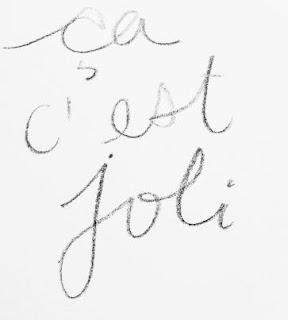 ça
c'est
joli